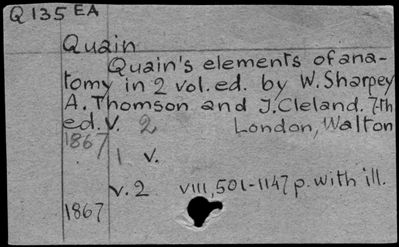 Q 135 EA
Quain
Quain's elements of ana-
tomy in 2 vol. ed. by W. Sharpey
A. Thomson and J. Cleland. 7th
ed. v. 2 London, Walton
1867
1 v.
v. 2 VIII, 501-1147 p. with ill.
1867